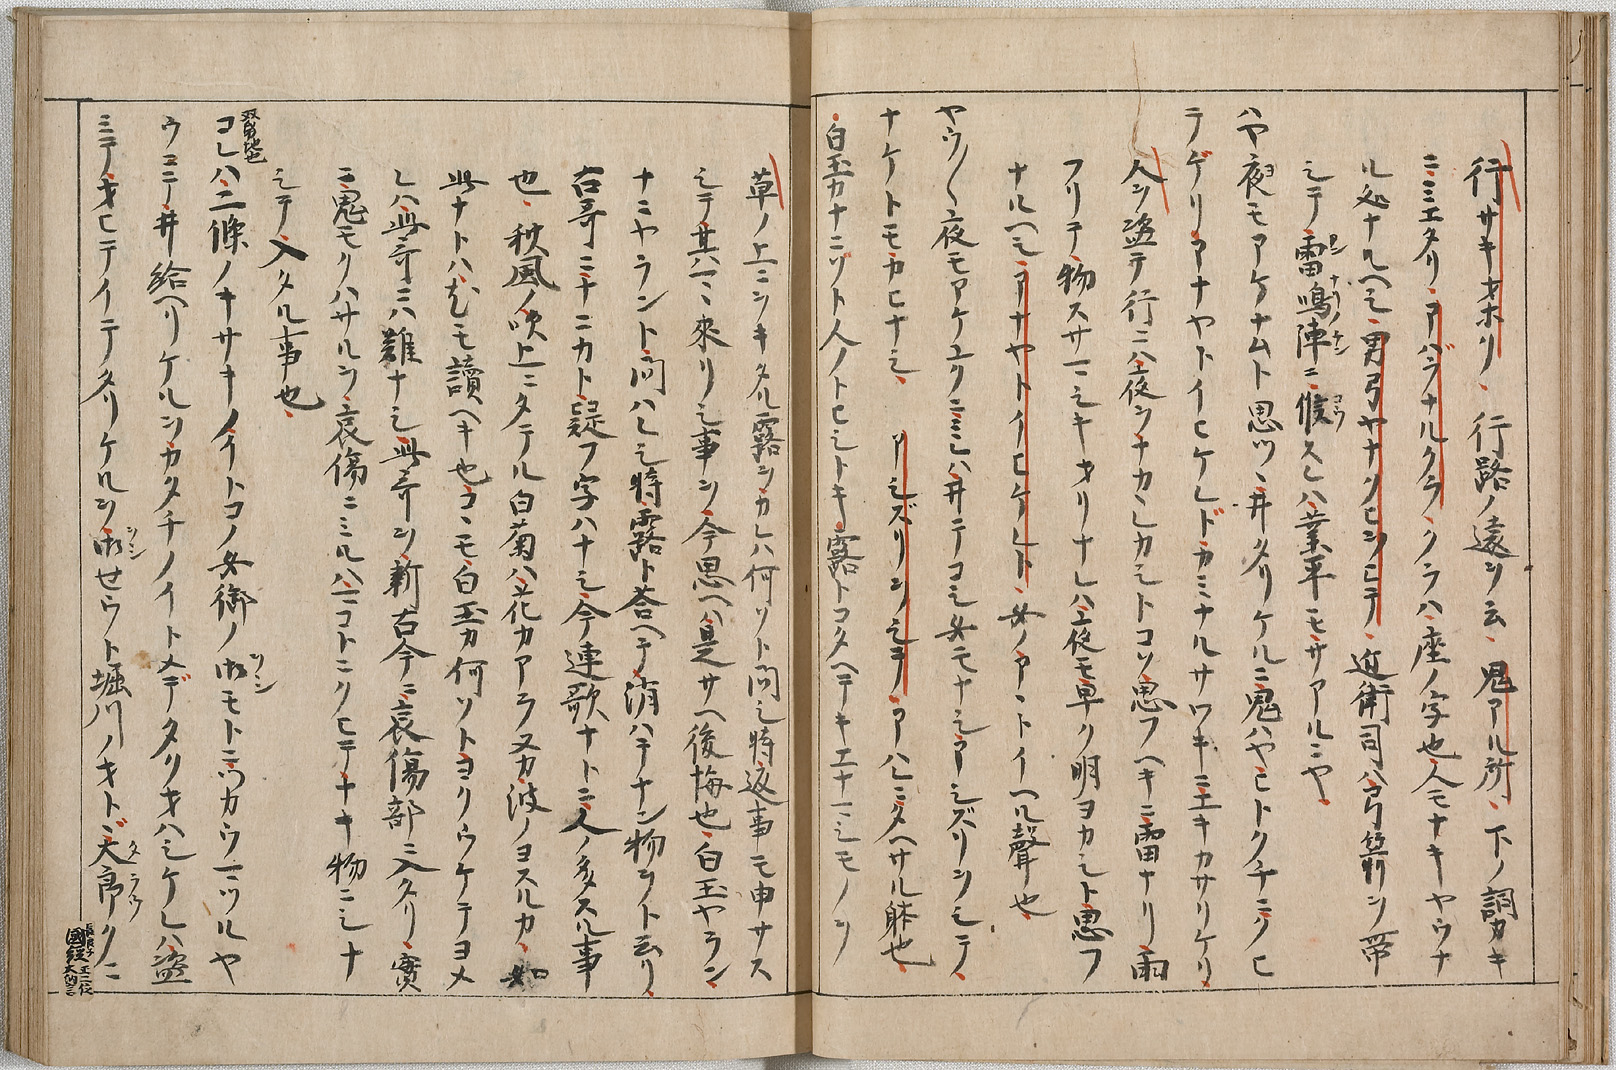 行サキオホリ、行路ノ遠ヲ云、鬼アル所、下ノ詞カキ
ニミエタリ、アバラナルクラ、クラハ座ノ字也人モナキヤウナ
ル処ナルヘシ、男弓ヤナクヒヲヒテ、近衛司ハ弓箭ヲ帯
シテ雷鳴陣ニ候スレハ業平モサアルニヤ、
ハヤ夜モアケナムト思ツヽ井タリケルニ鬼ハヤヒトクチニクヒ
テゲリアナヤトイヒケレドカミナルサワキニエキカサリケリ、
人ヲ盗テ行ニハ夜ヲナカヽレカシトコソ思フヘキニ雷ナリ雨
フリテ物スサマシキオリナレハ夜モ早ク明ヨカシト思フ
ナルヘシ、アナヤトイヒケレト、女ノアヽトイヘル聲也
ヤウ〱夜モアケユクニミレハ井テコシ女モナシアシズリヲシテ、
ナケトモカヒナシ、アシズリヲシテ、アハレニタヘサル躰也、
白玉カナニゾト人ノトヒシトキ露トコタヘテキエナマシモノヲ
草ノ上ニヲキタル露ヲカレハ何ソト問シ時返事モ申サス
シテ其マヽ來リシ事ヲ今思ヘハ是サヘ後悔也、白玉ヤラン
ナニヤラント問ハレシ時露ト荅ヘテ消ハテナン物ヲト云リ、
古哥ニナニカト疑フ字ハナシ今連歌ナトニ人ノ多スル事
也、秋風ノ吹上ニタテル白菊ハ花カアラヌカ波ノヨスルカ、如
此ナトハカモ讀ヘキ也コヽモ白玉カ何ソトヨクウケテヨメ
レハ此哥ニハ難ナシ此哥ヲ新古今ニ哀傷部ニ入タリ實
ニ鬼モクハサルヲ哀傷ニミルハマコトニクヒテナキ物ニシナ
シテ入タル事也、
コレハ二條ノキサキノイトコノ女御ノ御モトニツカウマツルヤ
ウニテ井給ヘリケルヲカタチノイトメデタクオハシケレハ盗
ミテオヒテイテタリケルヲ御せウト堀川ノオトヾ太郎クニ